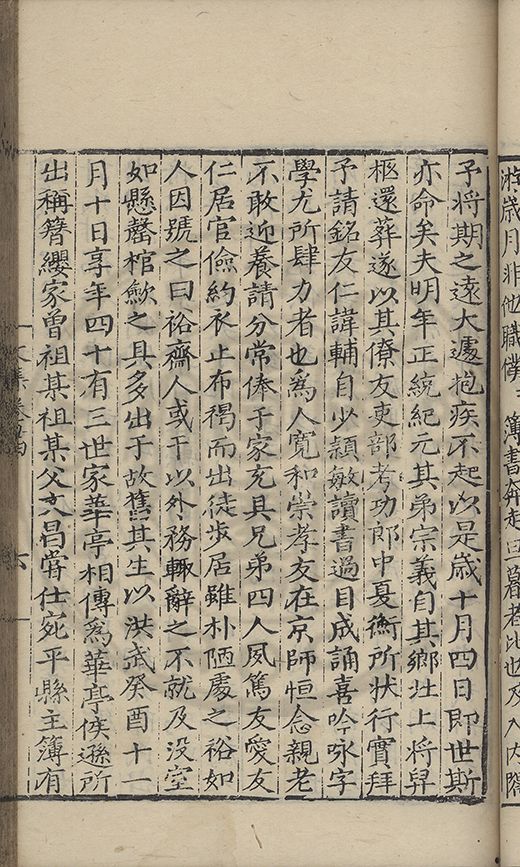 歲月非他職僕 簿書奔走 暮者比也及入内
予將期之遠大遽抱疾不起以是歲十月四日即世斯
亦命矣夫明年正統紀元其弟宗義自其鄉北上將舁
柩還葬遂以其僚友吏部考功郎中夏衡所狀行實拜
予請銘友仁諱輔自少頴敏讀書過目成誦喜吟咏字
學尤所肆力者也爲人寬和崇孝友在京師恒念親老
不敢近養請分常俸于家充具兄弟四人夙篤友愛友
仁居官儉約衣止布褐而出徒步居雖朴陋處之裕如
人因號之曰裕齋人或干以外務輒辭之不就及没室
如懸罄棺歛之具多出于故舊其生以洪武癸酉十一
月十日享年四十有三世家華亭相傳爲華亭侯遜所
出稱簪纓家曾祖某祖某父文昌嘗仕宛平縣主簿有
文集卷 六